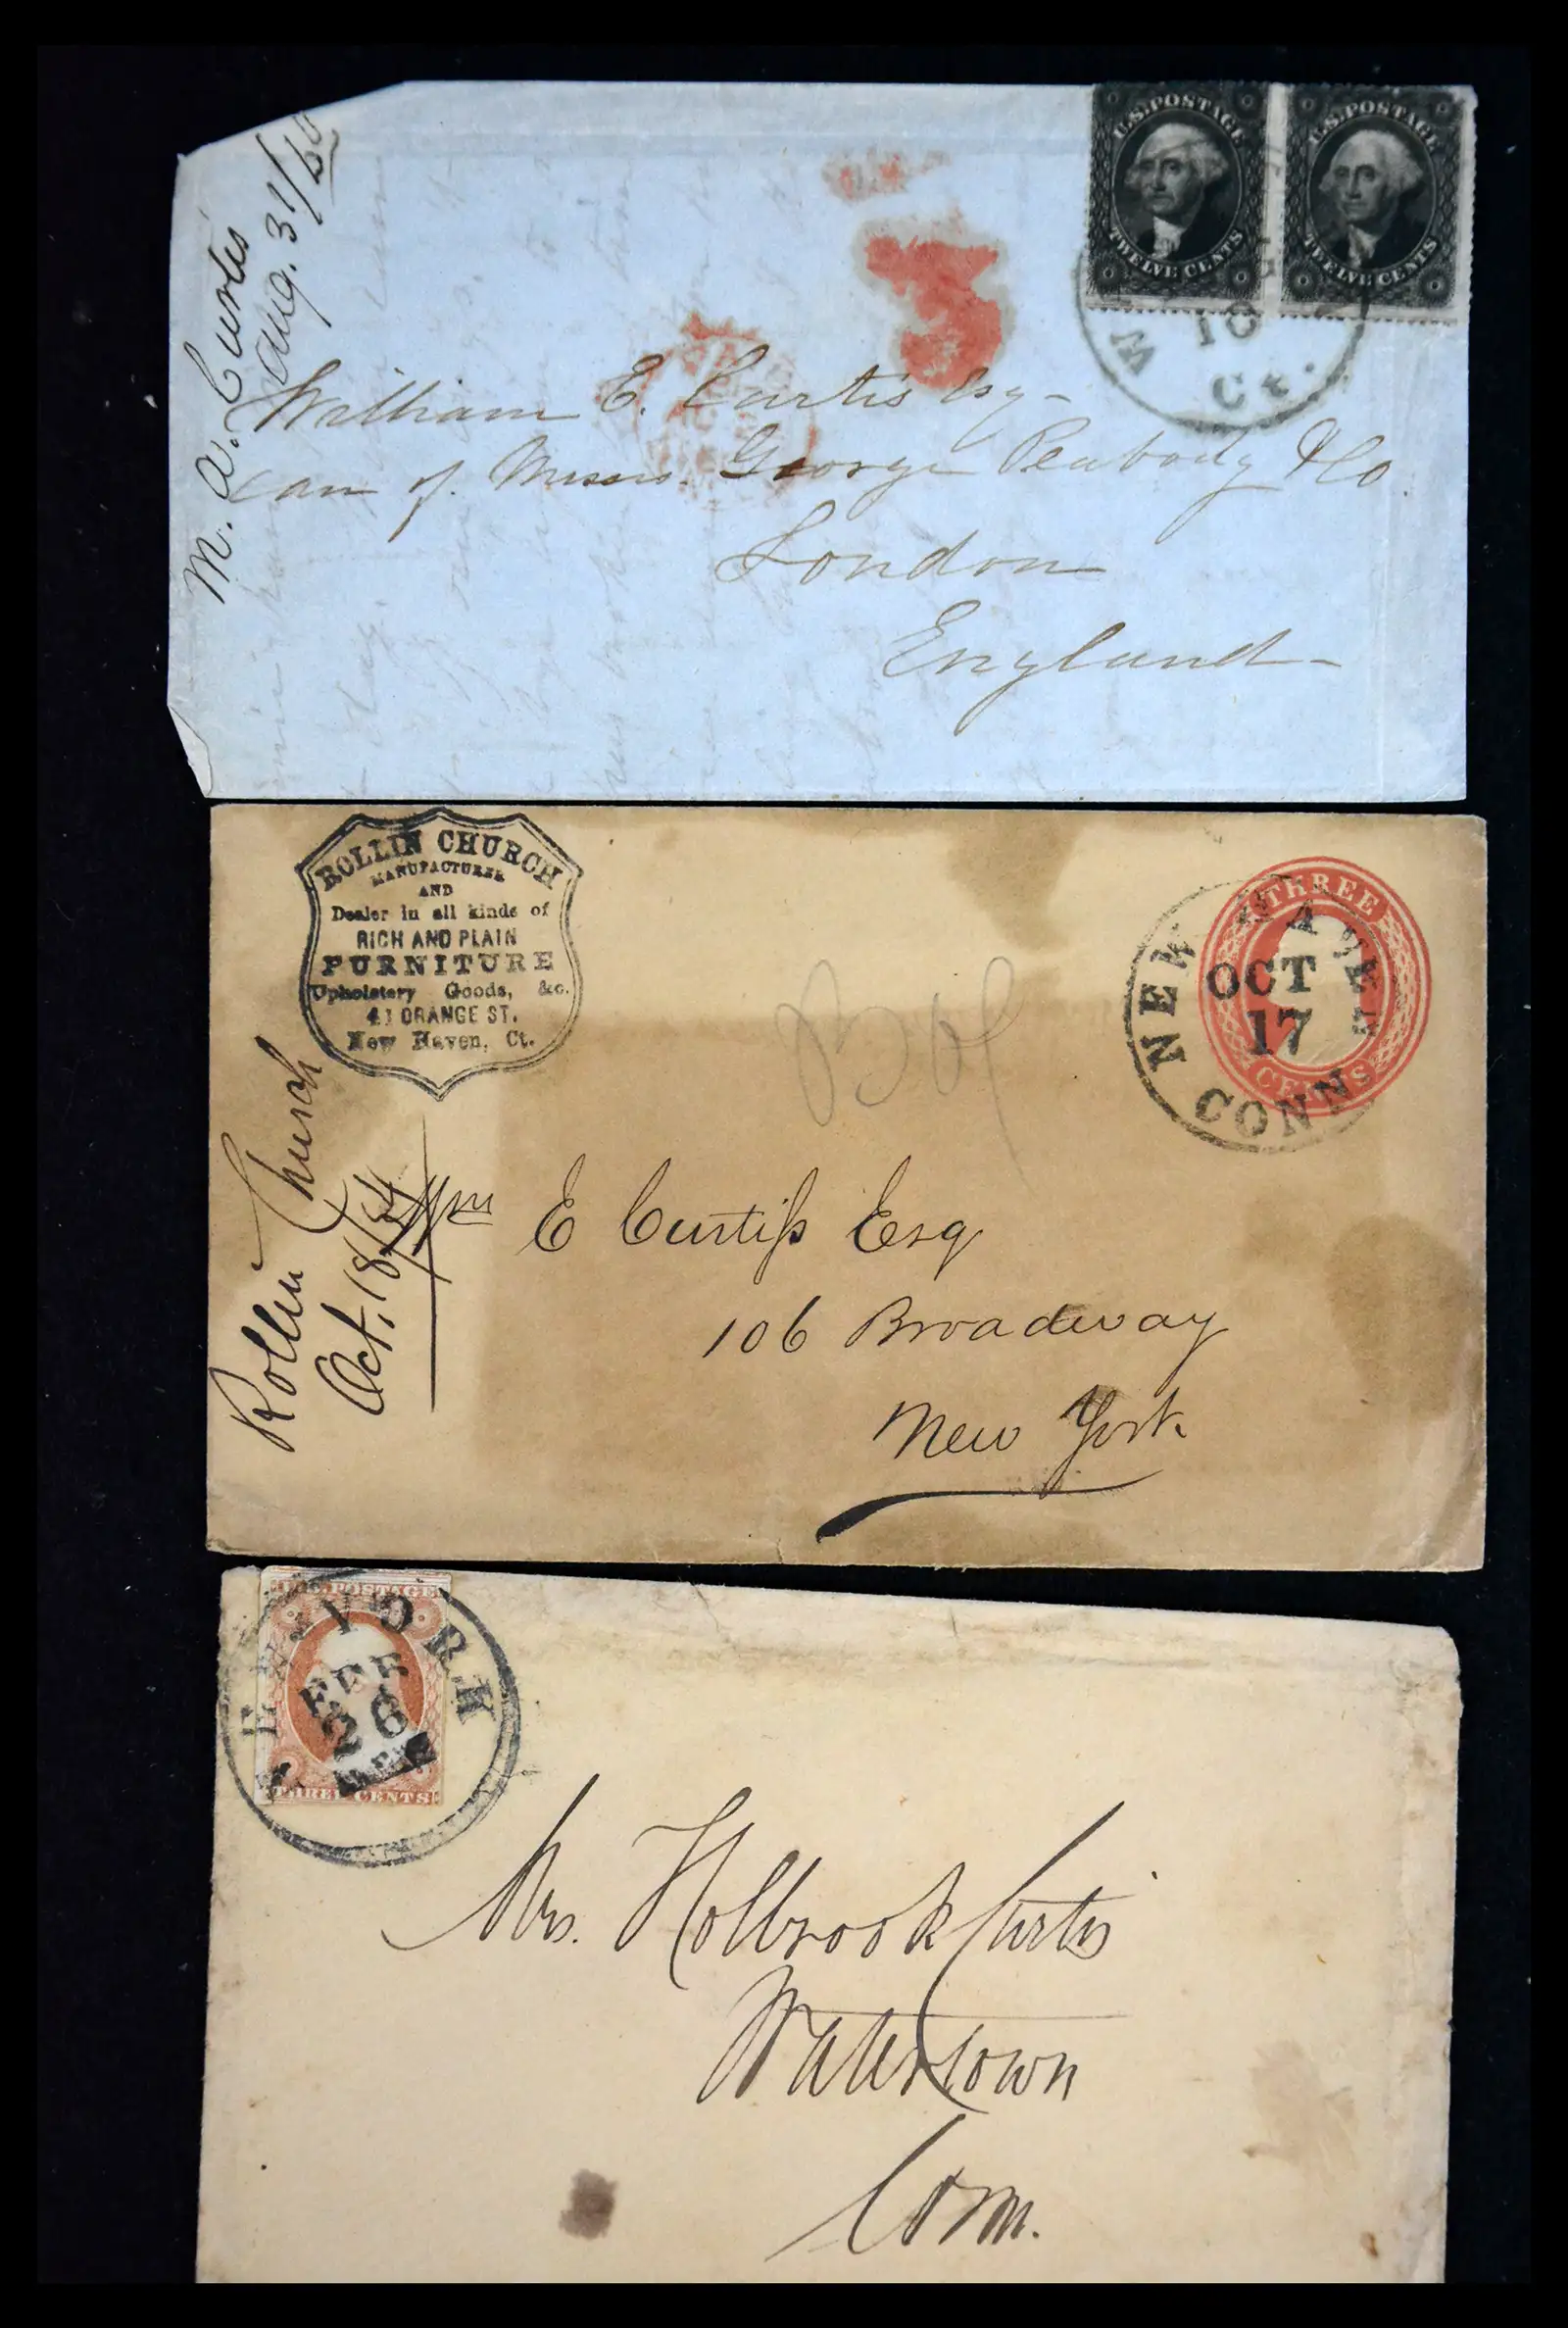 M. A. Curtis
Aug. 31/60
U.S. POSTAGE
TWELVE CENTS
U.S. POSTAGE
TWELVE CENTS
10
Ct.
3
William E. Curtis Esq-
care of. Messrs. George Peabody & Co.
London
England-
ROLLIN CHURCH
MANUFACTURER
AND
Dealer in all kinds of
RICH AND PLAIN
FURNITURE
Upholstery Goods, &c.
41 ORANGE ST.
New Haven, Ct.
THREE
CENTS
NEW HAVEN
OCT
17
CONN
Rollin Church
Oct. 18/54
Wm E Curtiſs Esq
106 Broadway
New York.
U.S. POSTAGE
THREE CENTS
NEW YORK
FEB
26
Mrs. Holbrook Curtis
Watertown
Conn.